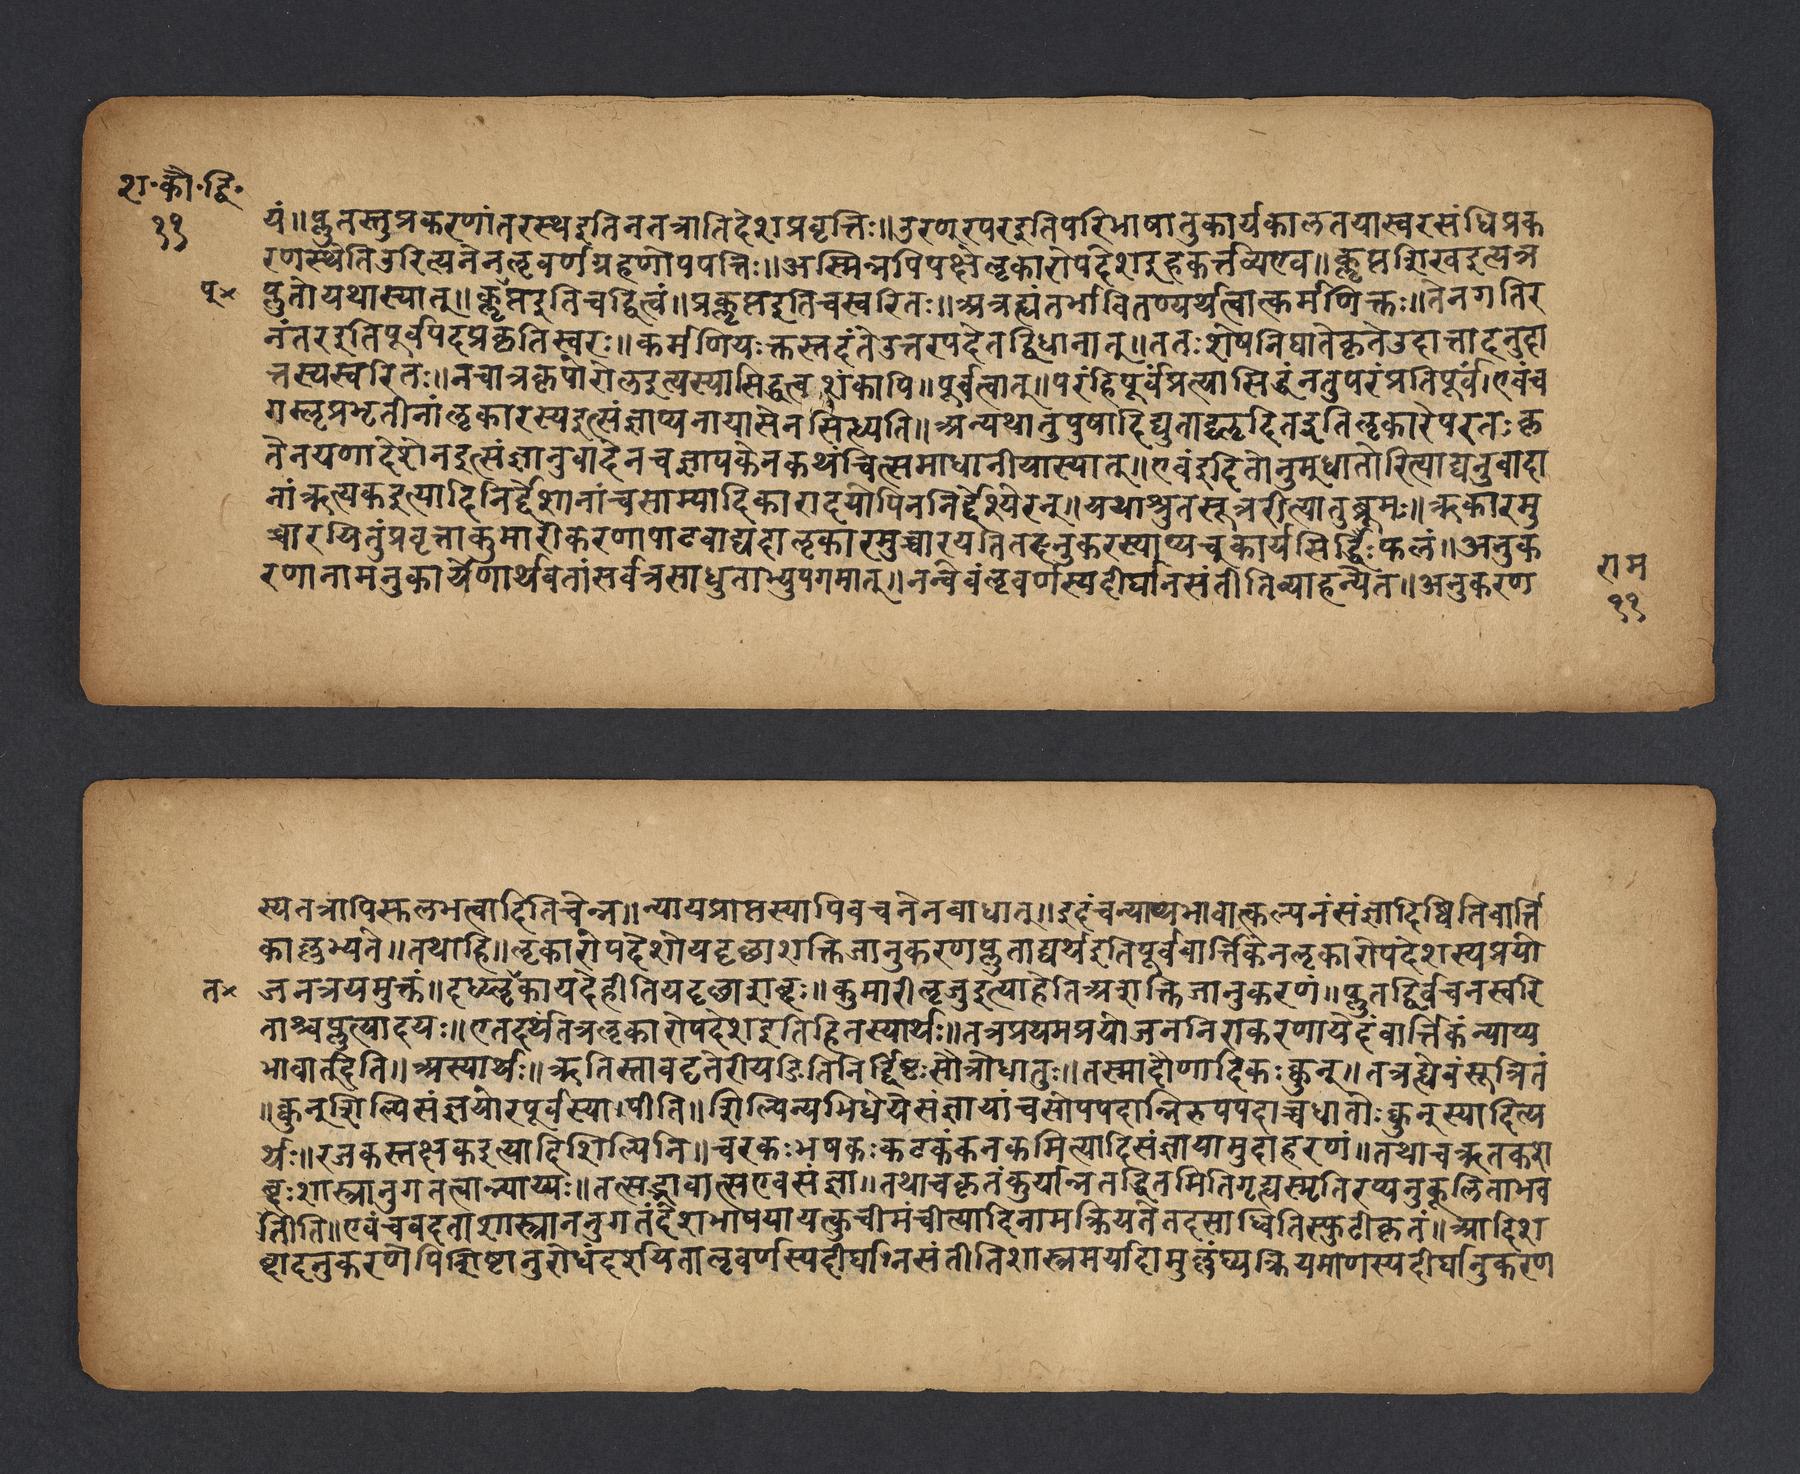 श॰कौ॰द्वि॰
११
यं॥प्लुतस्तुप्रकरणांतरस्थइतिनतत्रातिदेशप्रवृत्तिः॥उरण्रपरइतिपरिभाषातुकार्यकालतयास्वरसंधिप्रक
रणस्थेतिउरित्यनेनलृवर्णग्रहणोपपत्तिः॥अस्मिन्नपिपक्षेलृकारोपदेशइहकर्त्तव्यएव॥कॢप्तशिखइत्यत्र
पु×
प्लुतोयथास्यात्॥कॢप्तइतिचद्वित्वं॥प्रकॢप्तइतिचस्वरितः॥अत्रह्यंतर्भावितण्यर्थत्वात्कर्मणिक्तः॥तेनगतिर
नंतरइतिपूर्वपदप्रकृतिस्वरः॥कर्मणियःक्तस्तदंतेउत्तरपदेतद्विधानात्॥ततःशेषनिघातेकृतेउदात्तादनुदा
त्तस्यस्वरितः॥नचात्रकृपोरोलइत्यस्यासिद्धत्वशंकापि॥पूर्वत्वात्॥परंहिपूर्वंप्रत्यासिद्धंनतुपरंप्रतिपूर्वं।एवंच
गम्लृप्रभृतीनांलृकारस्यइत्संज्ञाप्यनायासेनसिध्यति॥अन्यथातुपुषादिद्युताद्यॢदितइतिलृकारेपरतःकृ
तेनयणादेशेनइत्संज्ञानुवादेनचज्ञापकेनकथंचित्समाधानीयास्यात्॥एवंइदितोनुमधातोरित्याद्यनुवादा
नांऋत्यकइत्यादिनिर्द्देशानांचसाम्यादिकारादयोपिननिर्द्दिश्येरन्॥यथाश्रुतसूत्ररीत्यातुब्रूमः॥ऋकारमु
च्चारयितुंप्रवृत्ताकुमारीकरणापाटवाद्यदालृकारमुच्चारयतितदनुकरस्याप्यच्कार्यसिद्धिःफलं॥अनुक
रणानामनुकार्येणार्थवतांसर्वत्रसाधुताभ्युपगमात्॥नन्वेवंलृवर्णस्यदीर्घानसंतीतिव्याहन्येत॥अनुकरण
राम
११
स्यतत्रापिस्तलभत्वादितिचेन्न॥न्यायप्राप्तस्यापिवचनेनबाधात्॥इहंचन्याय्यभावात्कल्पनंसंज्ञादिष्वितिवार्त्ति
काल्लभ्यते॥तथाहि॥लृकारोपदेशोयदृछाशक्तिजानुकरणप्लुताद्यर्थइतिपूर्ववार्त्तिकेनलृकारोपदेशस्यप्रयो
त×
जनत्रयमुक्तं॥दध्य्लृकायदेहीतियदृछाशब्दः॥कुमारीलृजुइत्याहेतिअशक्तिजानुकरणं॥प्लुतद्विर्वचनस्वरि
ताश्चप्लुत्यादयः॥एतदर्थेतिअलृकारोपदेशइतिहितस्यार्थः॥तत्रप्रथमप्रयोजननिराकरणायेदंवार्त्तिकंन्याय्य
भावादिति॥अस्यार्थः॥ऋतिस्तावदृतेरीयङितिनिर्द्दिष्टःसौत्रोधातुः॥तस्मादौणादिकःक्वुन्॥तत्रह्येवंसूत्रितं
॥क्वुन्शिल्पिसंज्ञयोरपूर्वस्यापीति॥शिल्पिन्यभिधेयेसंज्ञायांचसोपपदान्निरुपपदाच्चधातोःक्वुन्स्यादित्य
र्थः॥रजकस्तक्षकइत्यादिशिल्पिनि॥चरकःभषकःकटकंकनकमित्यादिसंज्ञायामुदाहरणं॥तथाचऋतकश
ब्दःशास्त्रानुगतत्वान्न्याय्यः॥तत्सद्भावात्सएवसंज्ञा॥तथाचकृतंकुर्यान्नतद्धितमितिगृह्यस्मृतिरप्यनुकूलिताभव
तीति॥एवंचवदताशास्त्राननुगतंदेशभाषयायत्कुचीमंचीत्यादिनामक्रियतेतदसाध्वितिस्फुटीकृतं॥आदिश
ब्दादनुकरणेपिशिष्टानुरोधंदर्शयितालृवर्णस्यदीर्घानसंतीतिशास्त्रमर्यादामुल्लंघ्यक्रियमाणस्यदीर्घानुकरण